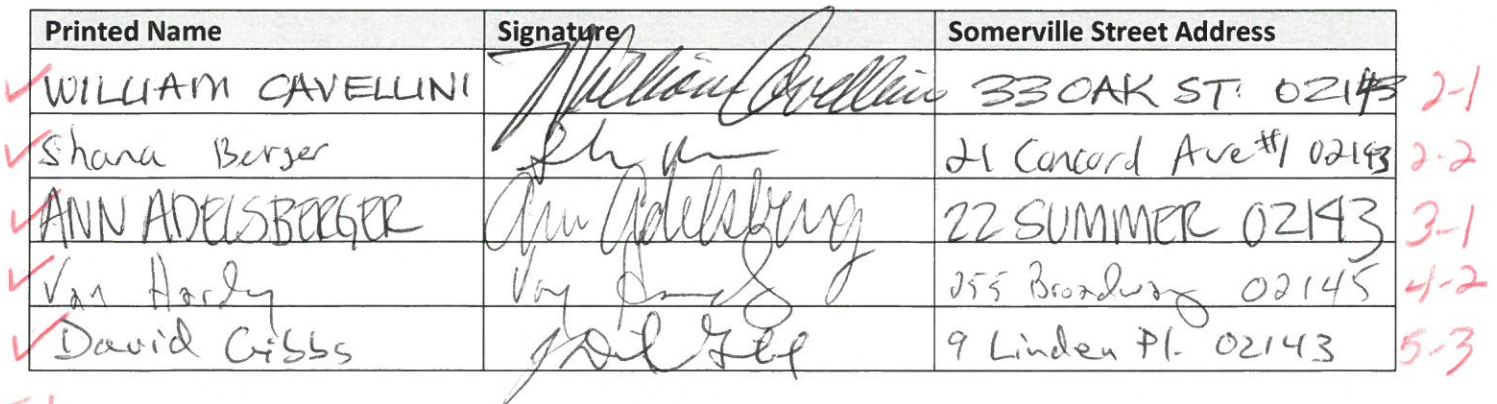 Printed Name Signature Somerville Street Address
WILLIAM CAVELLINI William Cavellini 33 OAK ST. 02143 2-1
Shana Berger 21 Concord Ave #1 02143 2-2
ANN ADELSBERGER Ann Adelsberg 22 SUMMER 02143 3-1
Van Hardy Van Hardy 255 Broadway 02145 4-2
David Gibbs 9 Linden Pl. 02143 5-3